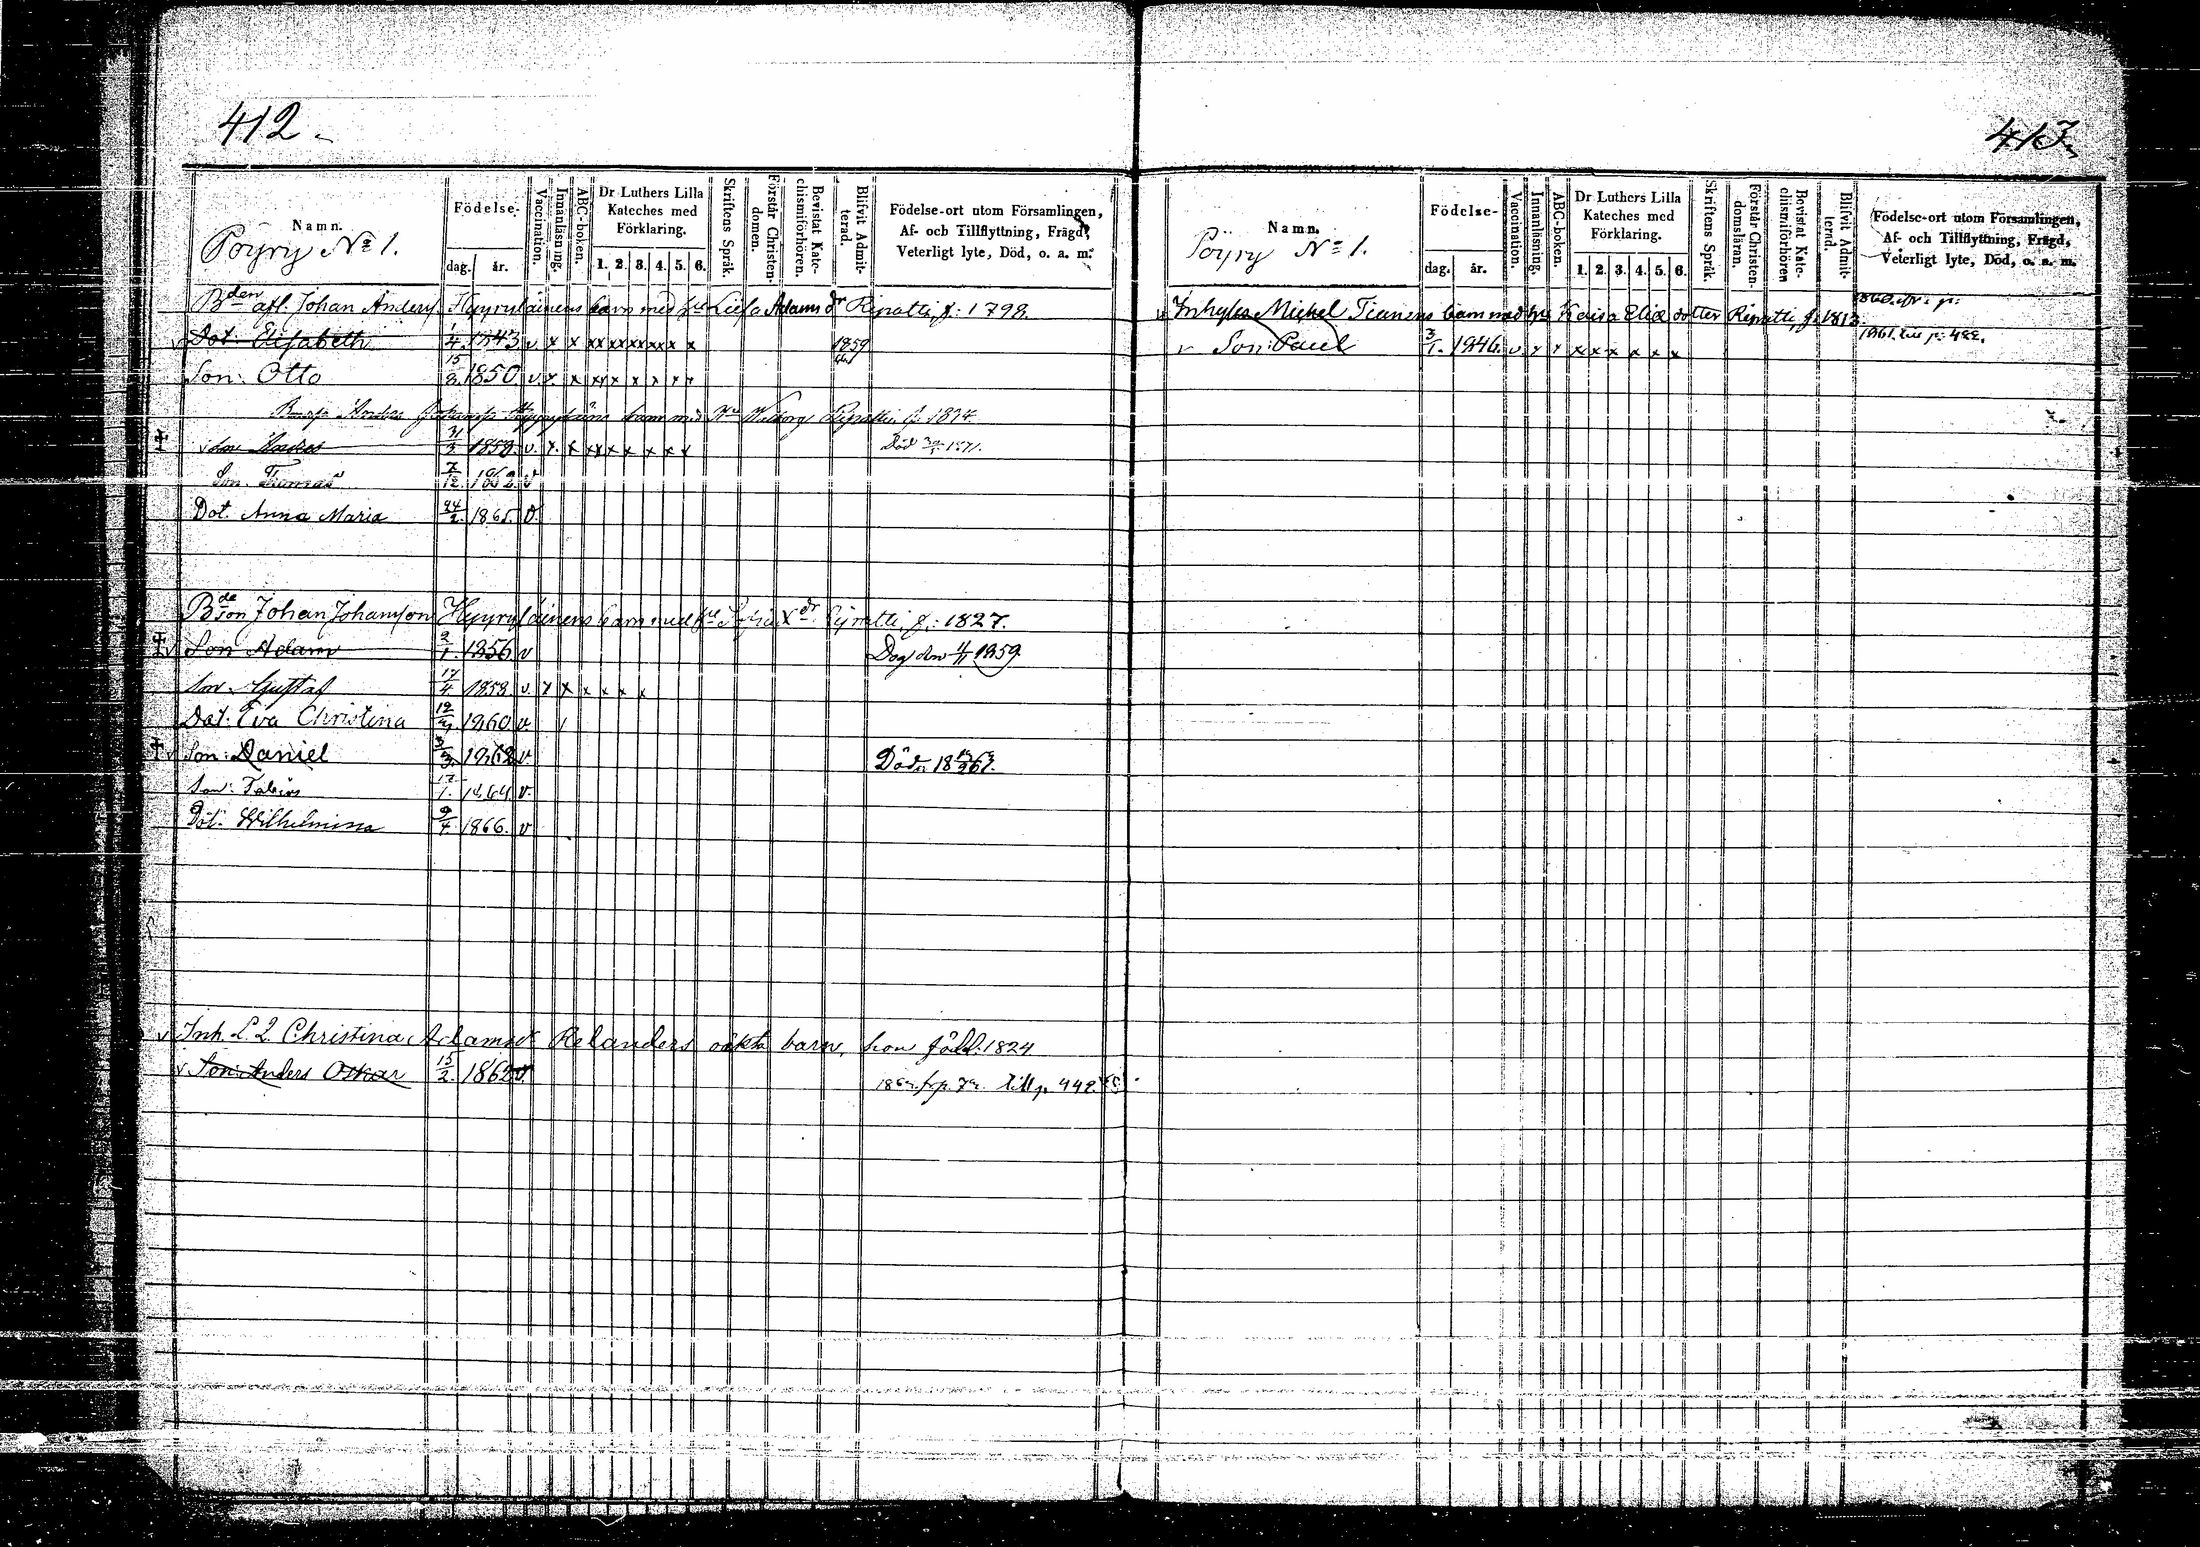 412
Namn.
Födelse-
dag. år.
Vaccination.
Innanläsning.
ABC-boken.
Dr Luthers Lilla
Kateches med
Förklaring.
1. 2. 3. 4. 5. 6.
Skriftens Språk.
Förstår Christen-
domen.
Bevistat Kate-
chismiförhören.
Blifvit Admit-
terad.
Födelse-ort utom Församlingen,
Af- och Tillflyttning, Frägd,
Veterligt lyte, Död, o. a. m.
Pöyry No 1.
Bden afl. Johan Anders. Hyyryläinens barn med Adams dr Ripatti, f: 1798.
Dot: Elisabeth 1/4 1843 v x x xx xx xx xx x x 1859
Son: Otto 15/8 1850 v x x xx x x x x x
Anders Hyyryläins barn med Ripatti f. 1824.
Son Anders 31/3 1858 v. x. x xx x x x x x Död 1871.
Son. Tomas 7/12 1862 v
Dot. Anna Maria 24/2 1865. v.
Bdeson Johan Johansson Hyyryläinens barn med Sofia dr Ripatti, f: 1827.
Son Adam 2/1 1856. v Dog den 11/11 1859
Son. Gustaf 17/4 1858 v. x x x x x x
Dot: Eva Christina 1860 v.
Son: Daniel 1862 v. Död
Son: Tobias 17/1. 1864 v.
Dot: Wilhelmina 9/4 1866. v
Inh. L. Q. Christina Adamsdr Relanders oäkta barn, hon född. 1824
Son: Anders Oskar 15/2. 1862 v. till p. 442.
413
Namn.
Födelse-
dag. år.
Vaccination.
Innanläsning.
ABC-boken.
Dr Luthers Lilla
Kateches med
Förklaring.
1. 2. 3. 4. 5. 6.
Skriftens Språk.
Förstår Christen-
domsläran.
Bevistat Kate-
chismiförhören
Blifvit Admit-
terad.
Födelse-ort utom Församlingen,
Af- och Tillflyttning, Frägd,
Veterligt lyte, Död, o. a. m.
Pöyry No 1.
Inhyses Michel barn med Kaisa Eliæ dotter Ripatti, f. 1813.
Son: Paul 3/1. 1846. v x x x x x x x x